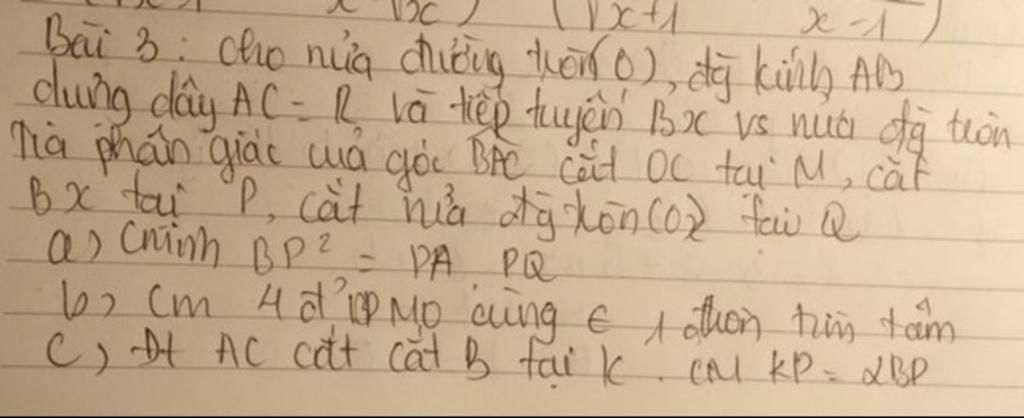 x √x ) ( √x+1 x-1 )
Bài 3: cho nửa đường tròn(O), đg kính AB
dựng dây AC = R và tiếp tuyến Bx vs nửa đg tròn
Tia phân giác của góc BAC cắt OC tại M, cắt
Bx tại P, cắt nửa đg tròn(O) tại Q
a) Cminh BP² = PA PQ
b) Cm 4 đ' PMO cùng ∈ 1 đtròn tìm tâm
C) Đt AC cắt cắt B tại K. CM KP = 2BP